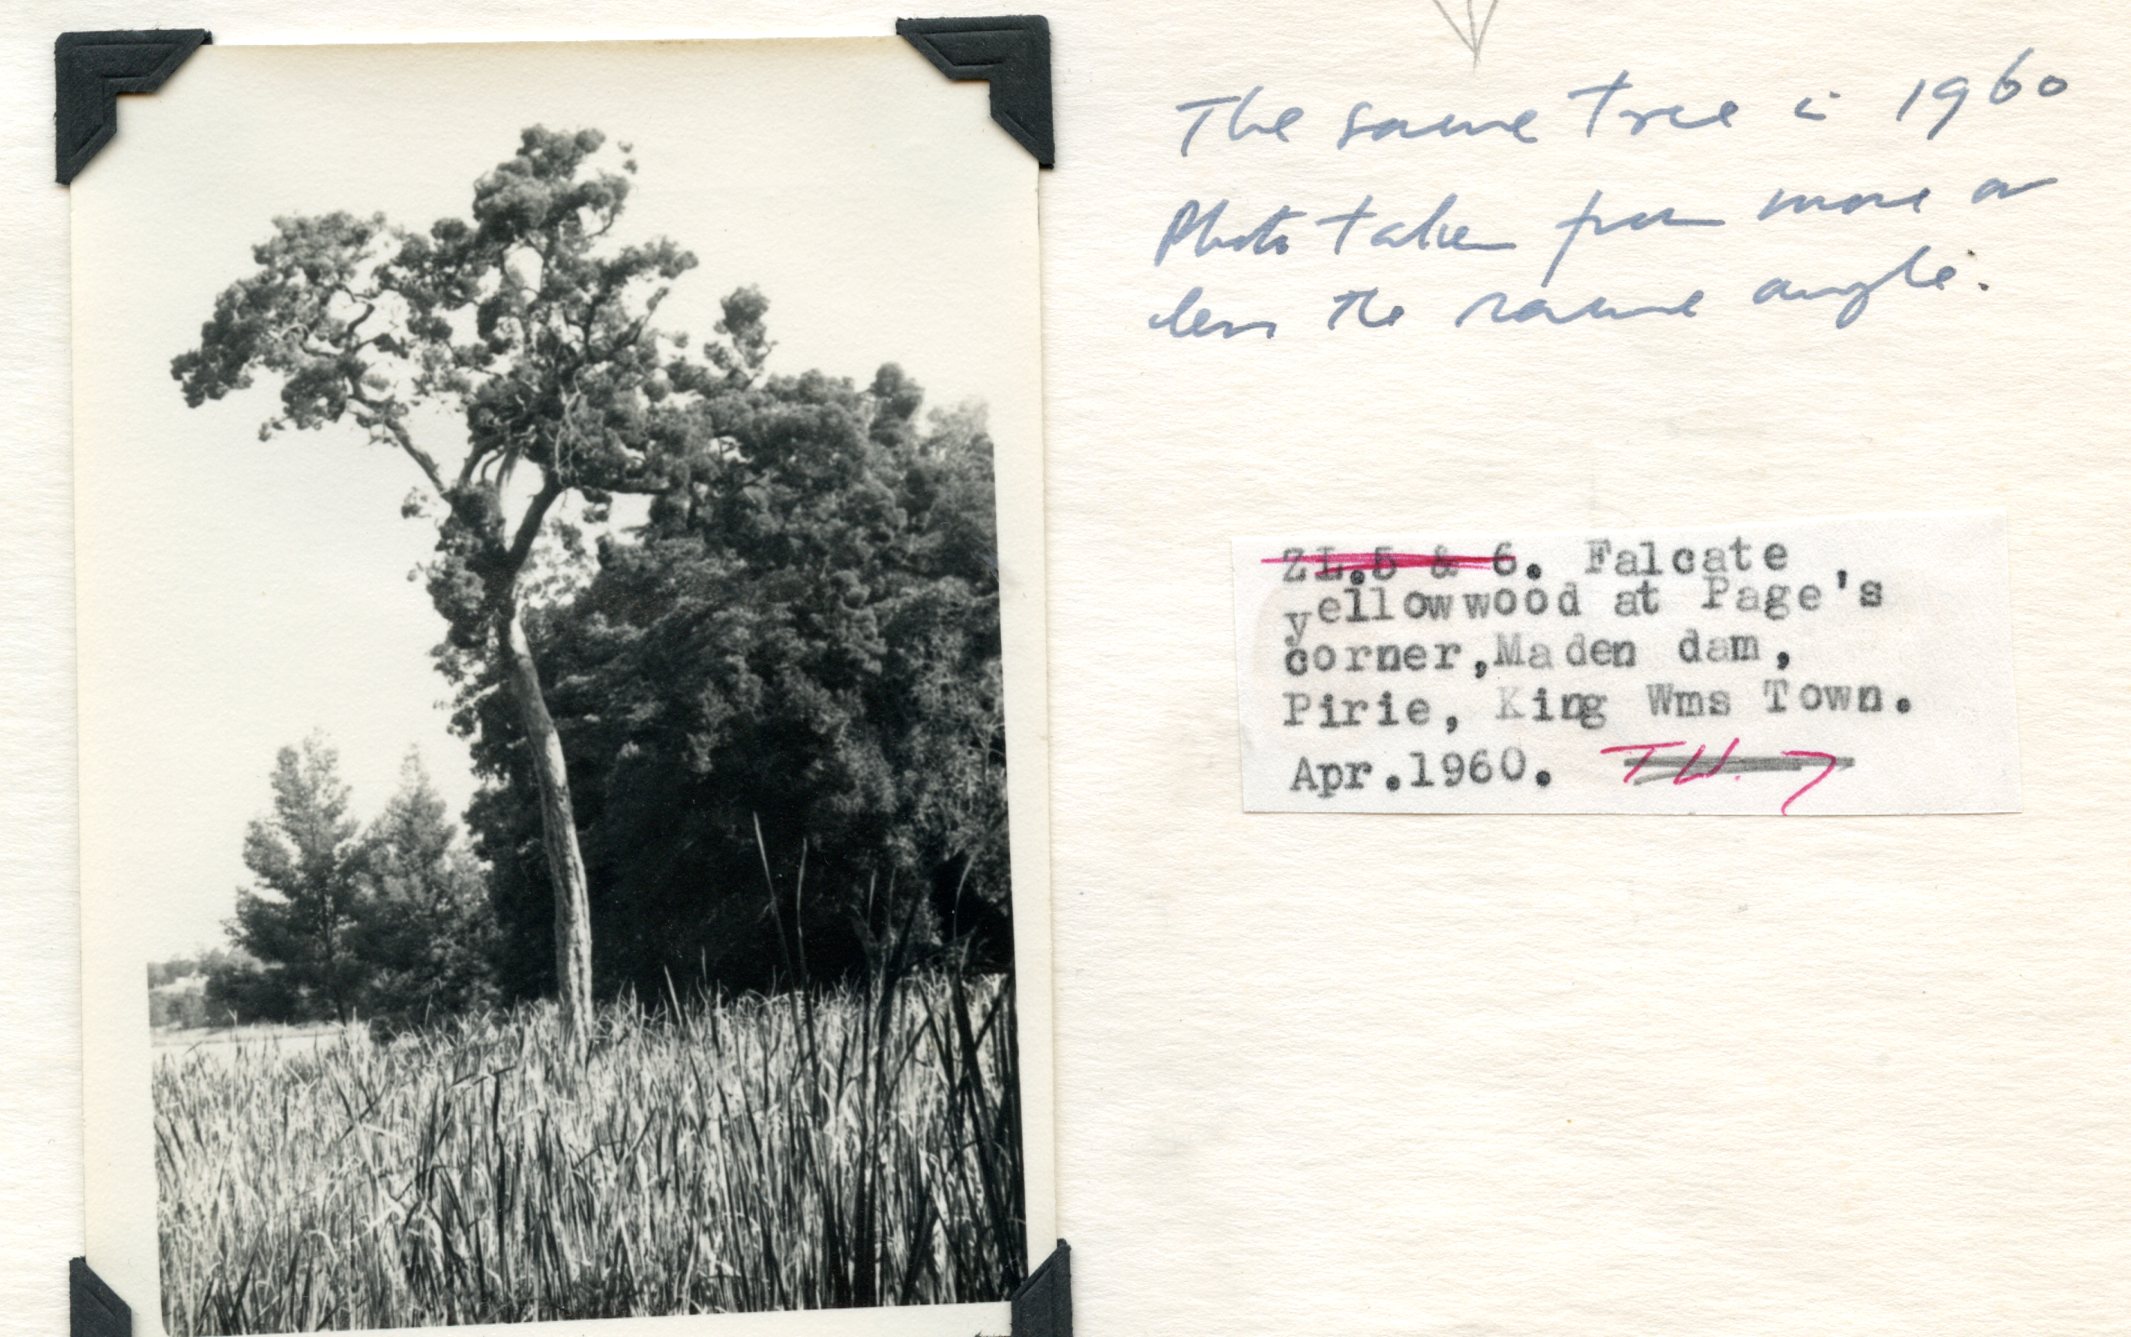 The same tree in 1960
Photo taken from more or
less the same angle.
ZL.5 & 6. Falcate
yellowwood at Page's
corner,Maden dam,
Pirie, King Wms Town.
Apr.1960.